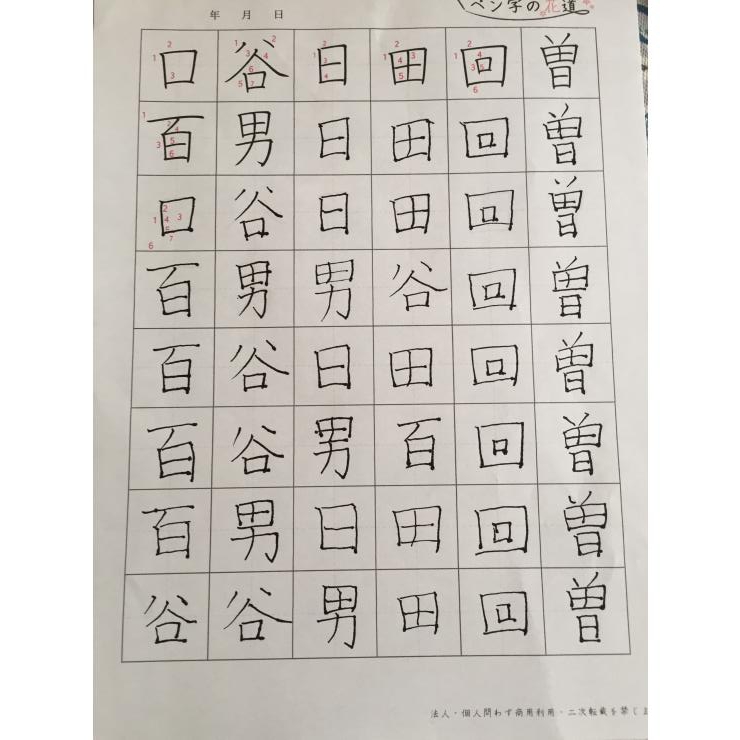 ペン字の花道
年 月 日
口 谷 日 田 回 曽
百 男 日 田 回 曽
口 谷 日 田 回 曽
百 男 男 谷 回 曽
百 谷 日 田 回 曽
百 谷 男 百 回 曽
百 男 日 田 回 曽
谷 谷 男 田 回 曽
法人・個人問わず商用利用・二次転載を禁じま